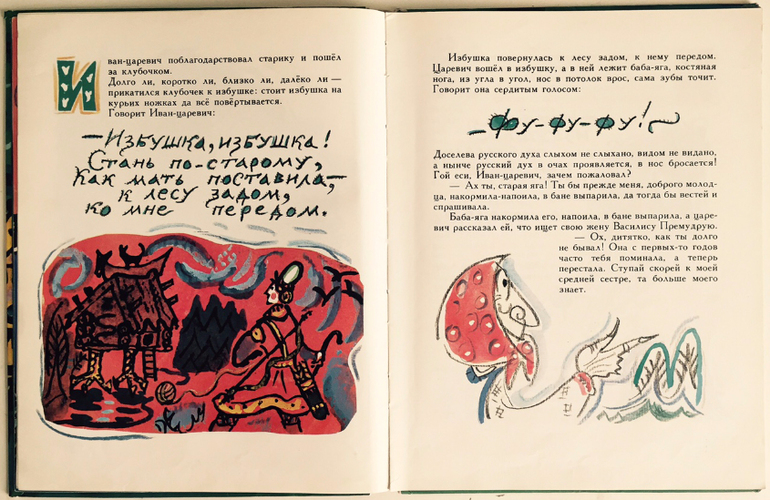 Иван-царевич поблагодарствовал старику и пошёл
за клубочком.
Долго ли, коротко ли, близко ли, далёко ли —
прикатился клубочек к избушке: стоит избушка на
курьих ножках да всё повёртывается.
Говорит Иван-царевич:
— Избушка, избушка!
Стань по-старому,
Как мать поставила, —
к лесу задом,
ко мне передом.
Избушка повернулась к лесу задом, к нему передом.
Царевич вошёл в избушку, а в ней лежит баба-яга, костяная
нога, из угла в угол, нос в потолок врос, сама зубы точит.
Говорит она сердитым голосом:
— Фу-фу-фу!
Доселева русского духа слыхом не слыхано, видом не видано,
а нынче русский дух в очах проявляется, в нос бросается!
Гой еси, Иван-царевич, зачем пожаловал?
— Ах ты, старая яга! Ты бы прежде меня, доброго молод-
ца, накормила-напоила, в бане выпарила, да тогда бы вестей и
спрашивала.
Баба-яга накормила его, напоила, в бане выпарила, а царе-
вич рассказал ей, что ищет свою жену Василису Премудрую.
— Ох, дитятко, как ты долго
не бывал! Она с первых-то годов
часто тебя поминала, а теперь
перестала. Ступай скорей к моей
средней сестре, та больше моего
знает.